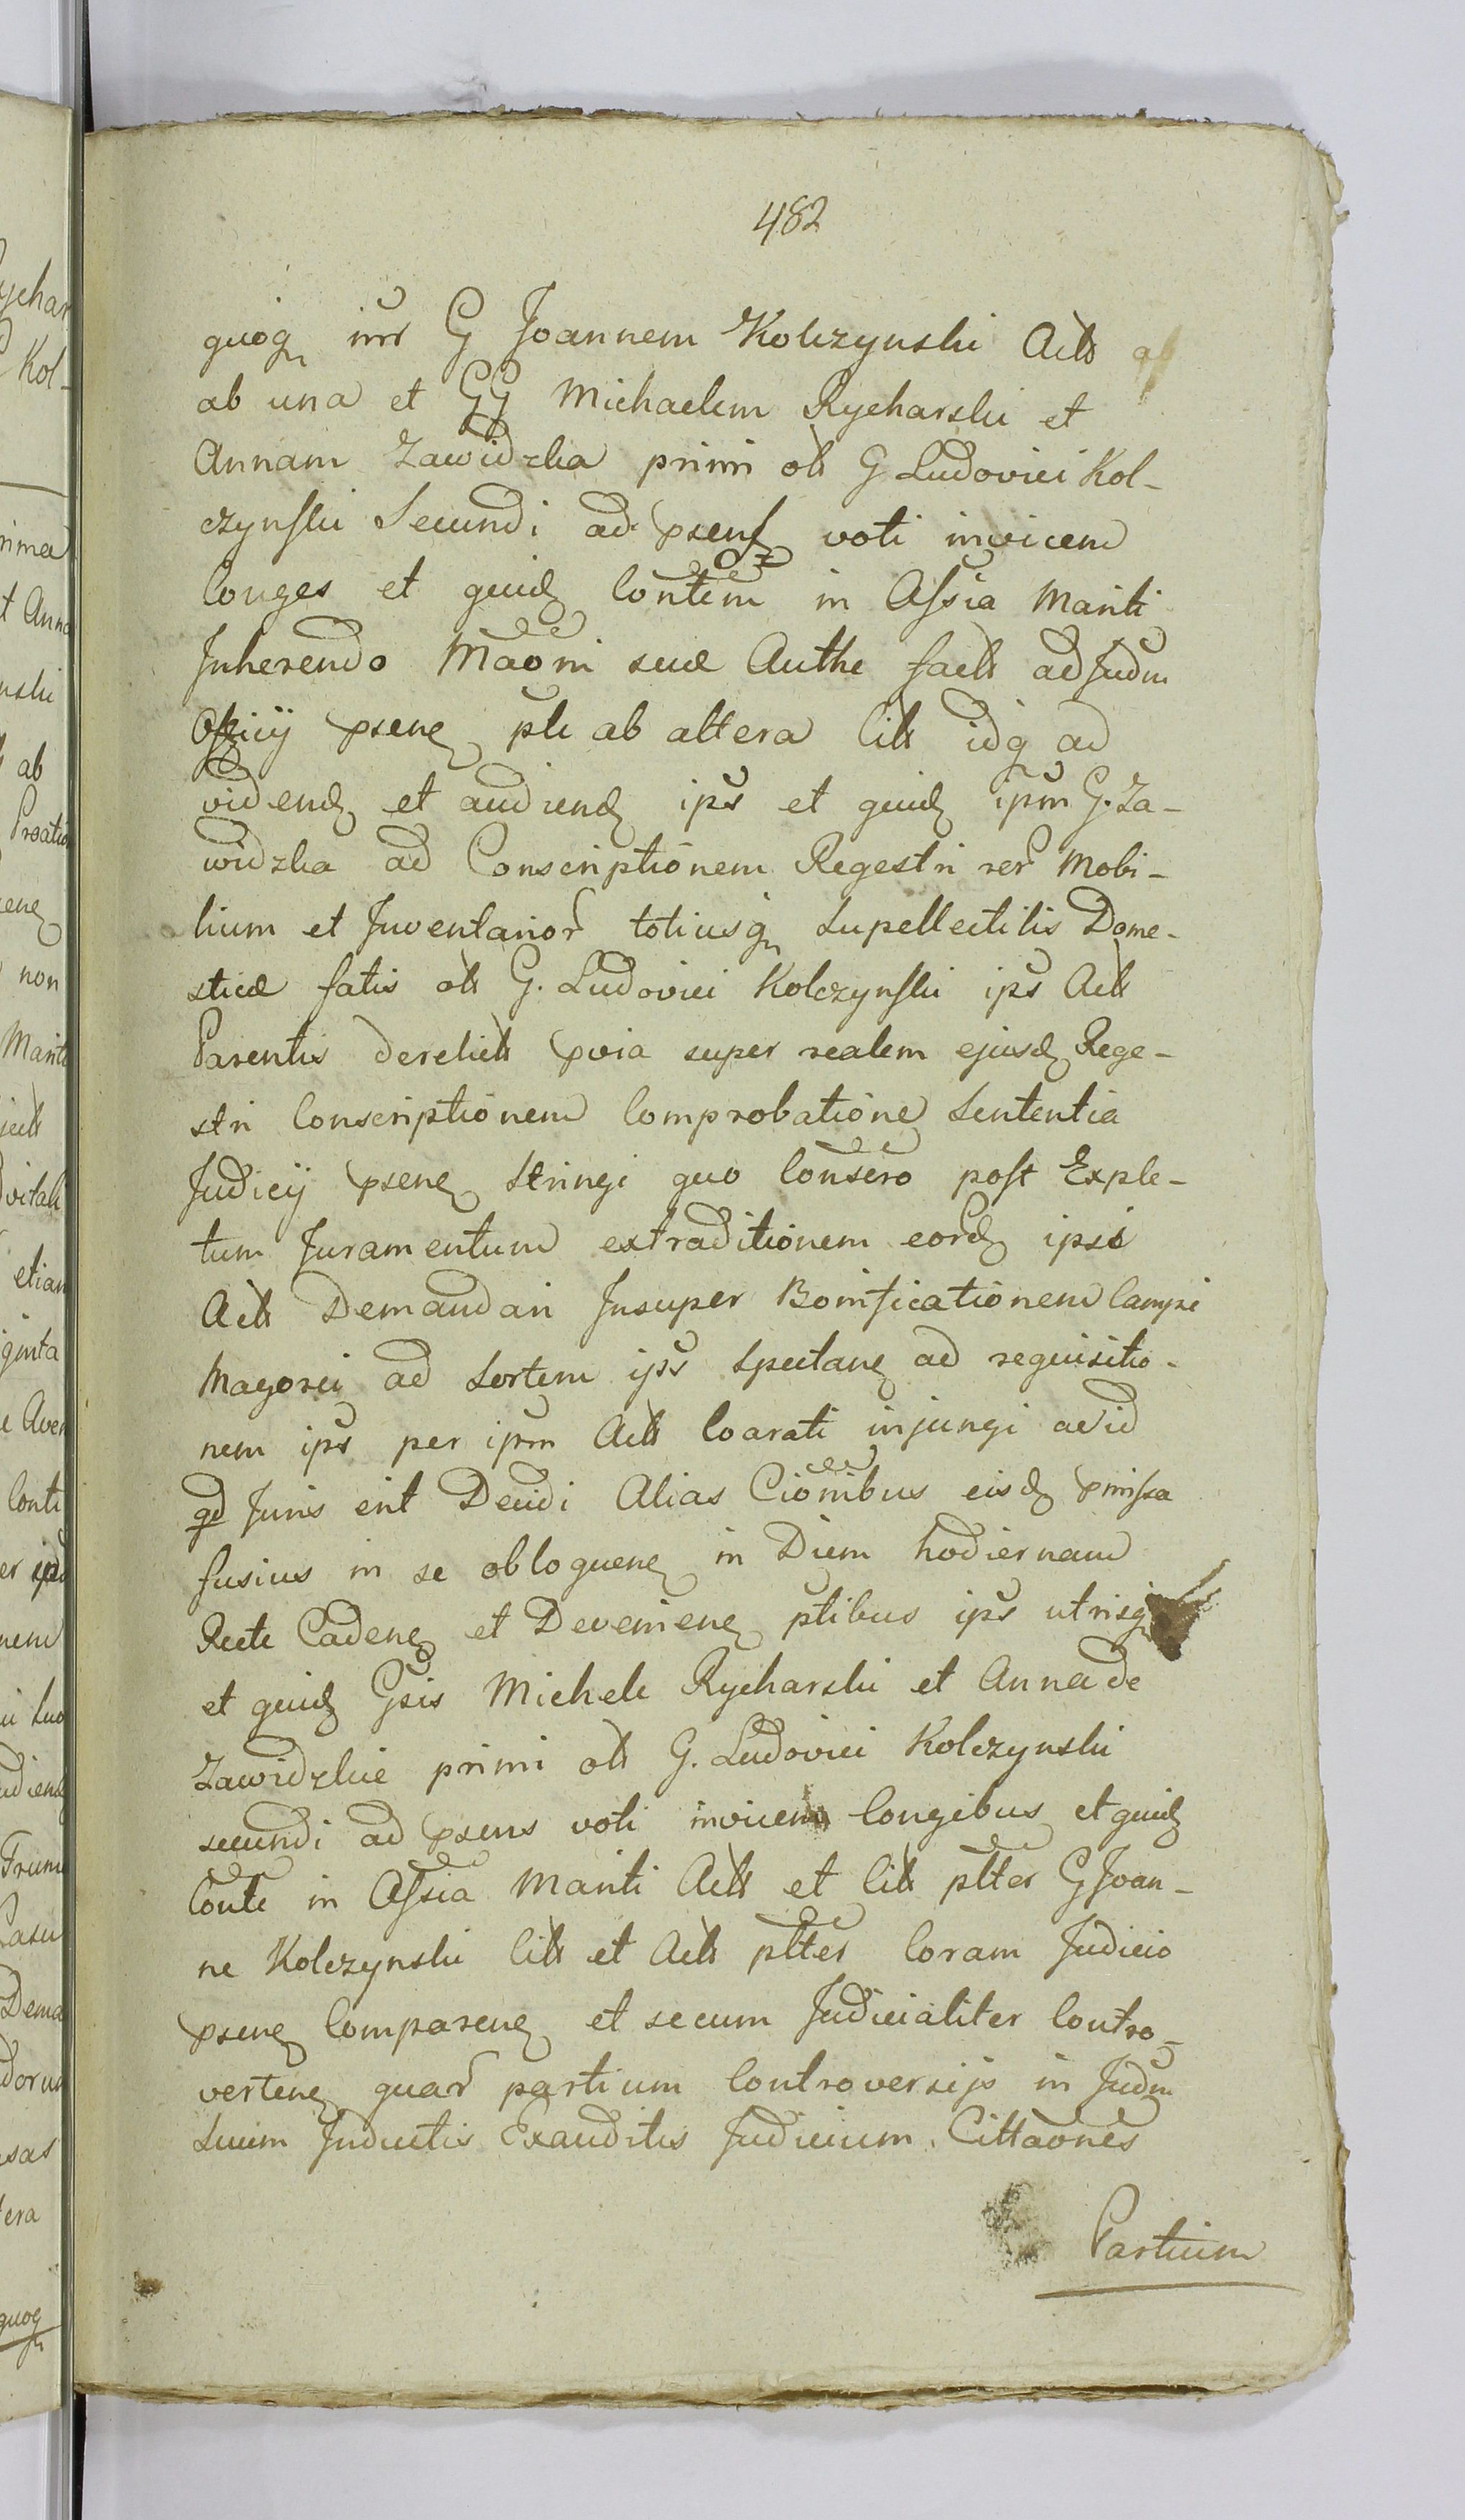 482
quoq inr G Joannem Kolczynski Actt
ab una et GG Michaelem Rycharski et
Annam Zawidzka primi olt G Ludovici Kol-
czynski Secundi ad psens voti invicem
Conges et quid Contem in Assia Mariti
Inherendo Maoni suæ Authe factt ad Judm
Officij psene ple ab altera Citt idq ad
videnđ et audienđ ips et quid ipm G. Za-
widzka ad Conscriptionem Regestri rer Mobi-
lium et Inventarior totiusq Supellectilis Dome-
sticæ fatis olt G. Ludovici Kolczynski ips Actt
Parentis derelictt pvia super realem ejusd Rege-
stri Conscriptionem Comprobatione Sententia
Judicij psene Stringi quo Consero post Exple-
tum Juramentum extraditionem eord ipsi
Actt Demandari Insuper Bonificationem Campi
Magorei ad Sortem ips Spectane ad requisitio-
nem ips per ipm Actt Coarati injungi ac id
qd Juris erit Decidi Alias Cionibus eisd pmissa
fusius in se obloquene in Diem hodiernam
Recte Cadene et Deveniene ptibus ips utrisq
et quid Gsis Michele Rycharski et Anna de
Zawidzkie primi olt G. Ludovici Kolczynski
secundi ad psens voti invicem Congibus et quid
Conte in Assia Mariti Actt et Citt plter G Joan-
ne Kolczynski Citt et Actt plter Coram Judicio
psene Comparene et secum Judicialiter Contro-
vertene quar partium Controversijs in Judm
Suum Inductis Exauditis Judicium Cittaones
Partium